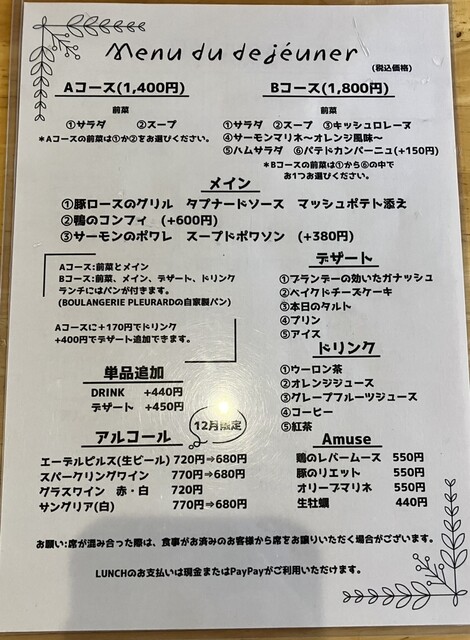 Menu du dejéuner
(税込価格)
Aコース(1,400円)
前菜
①サラダ ②スープ
＊Aコースの前菜は①か②をお選びください。
Bコース(1,800円)
前菜
①サラダ ②スープ ③キッシュロレーヌ
④サーモンマリネ～オレンジ風味～
⑤ハムサラダ ⑥パテドカンパーニュ(+150円)
＊Bコースの前菜は①から⑥の中で
お1つお選びください。
メイン
①豚ロースのグリル タプナードソース マッシュポテト添え
②鴨のコンフィ (+600円)
③サーモンのポワレ スープドポワソン (+380円)
Aコース:前菜とメイン
Bコース:前菜、メイン、デザート、ドリンク
ランチにはパンが付きます。
(BOULANGERIE PLEURARDの自家製パン)
Aコースに＋170円でドリンク
+400円でデザート追加できます。
デザート
①ブランデーの効いたガナッシュ
②ベイクドチーズケーキ
③本日のタルト
④プリン
⑤アイス
ドリンク
①ウーロン茶
②オレンジジュース
③グレープフルーツジュース
④コーヒー
⑤紅茶
単品追加
DRINK +440円
デザート +450円
12月限定
アルコール
エーデルピルス(生ビール) 720円⇒680円
スパークリングワイン 770円⇒680円
グラスワイン 赤・白 720円
サングリア(白) 770円⇒680円
Amuse
鶏のレバームース 550円
豚のリエット 550円
オリーブマリネ 550円
生牡蠣 440円
お願い:席が混み合った際は、食事がお済みのお客様から席をお譲りいただく場合がございます。
LUNCHのお支払いは現金またはPayPayがご利用いただけます。